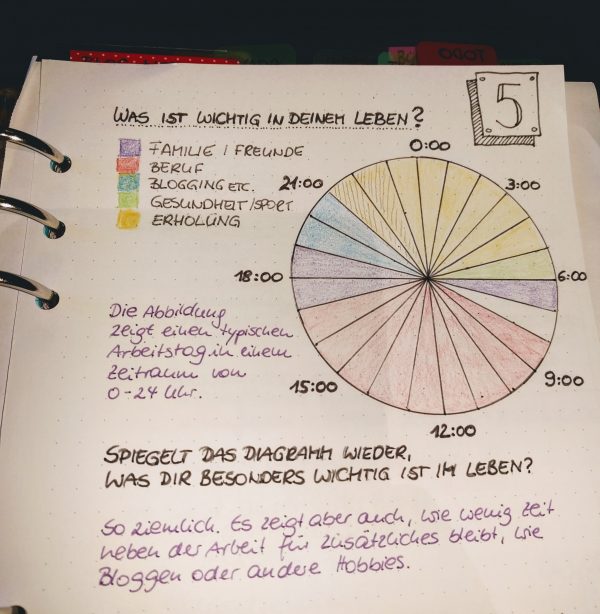 TODO
5
WAS IST WICHTIG IN DEINEM LEBEN?
FAMILIE / FREUNDE
BERUF
BLOGGING ETC.
GESUNDHEIT/SPORT
ERHOLUNG
0:00
3:00
6:00
9:00
12:00
15:00
18:00
21:00
Die Abbildung
zeigt einen typischen
Arbeitstag in einem
Zeitraum von
0-24 Uhr.
SPIEGELT DAS DIAGRAMM WIEDER,
WAS DIR BESONDERS WICHTIG IST IM LEBEN?
So ziemlich. Es zeigt aber auch, wie wenig Zeit
neben der Arbeit für zusätzliches bleibt, wie
Bloggen oder andere Hobbies.